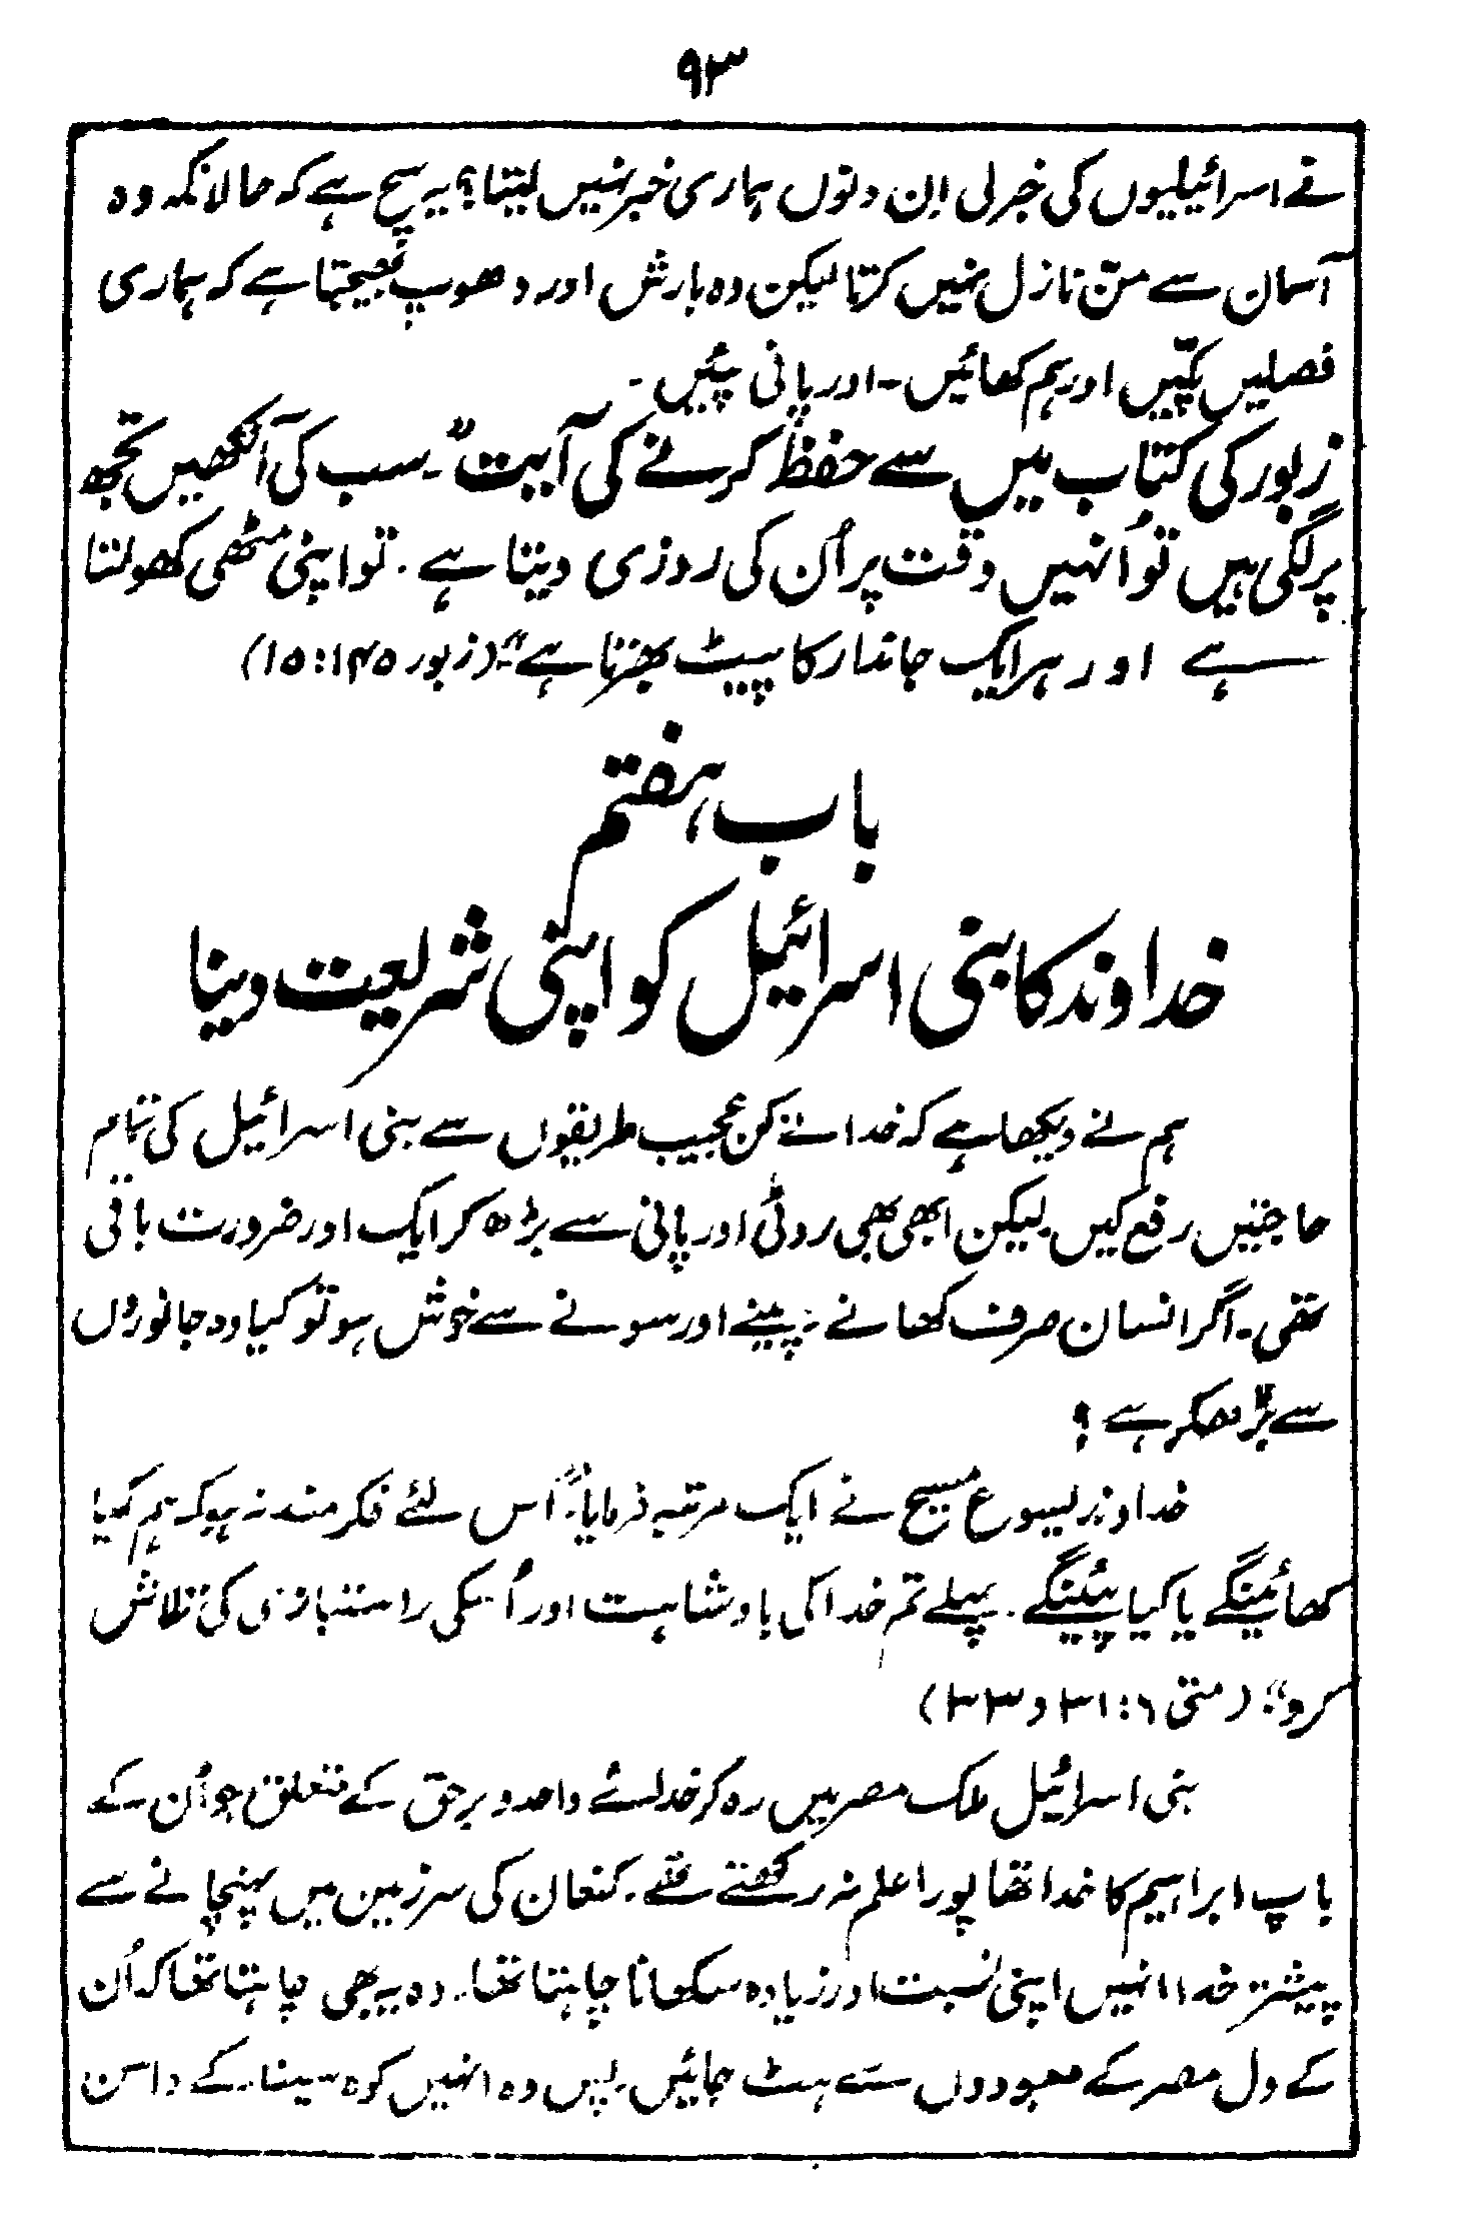 ۹۳
نے اسرائیلیوں کی خبر لی اِن دنوں ہماری خبر نہیں لیتا؟ یہ سچ ہے کہ حالانکہ وہ
آسمان سے منّ نازل نہیں کرتا لیکن وہ بارش اور دھوپ بھیجتا ہے کہ ہماری
فصلیں پکّیں اور ہم کھائیں۔ اور پانی پئیں۔
زبور کی کتاب میں سے حفظ کرنے کی آیت ”۔ سب کی آنکھیں تجھ
پر لگی ہیں تو اُنہیں وقت پر اُن کی روزی دیتا ہے۔ تو اپنی مٹھی کھولتا
ہے اور ہر ایک جاندار کا پیٹ بھرتا ہے“۔ (زبور ۱۴۵:۱۵)
باب ہفتم
خداوند کا بنی اسرائیل کو اپنی شریعت دینا
ہم نے دیکھا ہے کہ خدا نے کن عجیب طریقوں سے بنی اسرائیل کی تمام
حاجتیں رفع کیں لیکن ابھی بھی روٹی اور پانی سے بڑھ کر ایک اور ضرورت باقی
تھی۔ اگر انسان صرف کھانے۔ پینے اور سونے سے خوش ہو تو کیا وہ جانوروں
سے بڑھکر ہے؟
خداوند یسوع مسیح نے ایک مرتبہ فرمایا۔ ”اس لئے فکرمند نہ ہو کہ ہم کیا
کھائینگے یا کیا پئینگے۔ پہلے تم خدا کی بادشاہت اور اُسکی راستبازی کی تلاش
کرو“۔ (متی ۶:۳۱ و ۳۳)
بنی اسرائیل ملک مصر میں رہ کر خدائے واحد و برحق کے متعلق جو اُن کے
باپ ابراہیم کا خدا تھا پورا علم نہ رکھتے تھے۔ کنعان کی سرزمین میں پہنچانے سے
پیشتر خدا انہیں اپنی نسبت اور زیادہ سکھانا چاہتا تھا۔ وہ یہ بھی چاہتا تھا کہ اُن
کے دل مصر کے معبودوں سے ہٹ جائیں پس وہ انہیں کوہ سینا کے دامن